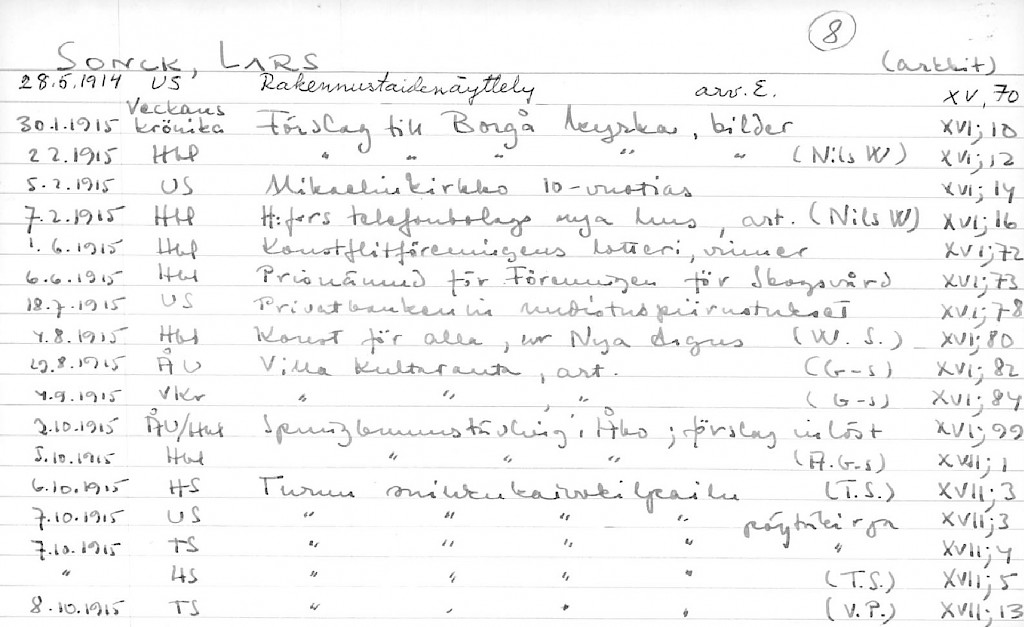 8
SONCK, LARS (arkkit)
28.5.1914 US Rakennustaidenäyttely arv. E. XV, 70
30.1.1915 Veckans krönika Förslag till Borgå kyrka, bilder XVI; 10
2 2.1915 Hbl " " " " " (Nils W) XVI; 12
5.2.1915 US Mikaelinkirkko 10-vuotias XVI; 14
7.2.1915 Hbl H:fors telefonbolags nya hus, art. (Nils W) XVI; 16
1.6.1915 Hbl Konstflitföreningens lotteri, XVI; 72
6.6.1915 Hbl Prisnämnd för Föreningen för Skogsvård XVI; 73
18.7.1915 US Privatbankenin uudistuspiirustukset XVI; 78
4.8.1915 Hbl Konst för alla, ur Nya Argus (W. S.) XVI; 80
29.8.1915 ÅU Villa Kultaranta, art. (G-s) XVI; 82
4.9.1915 VKr " " , " (G-s) XVI; 84
2.10.1915 ÅU/Hbl i Åbo; förslag inlöst XVI; 99
5.10.1915 Hbl " " " (A. G-s) XVII; 1
6.10.1915 HS Turun (T.S.) XVII; 3
7.10.1915 US " " " " pöytäkirja XVII; 3
7.10.1915 TS " " " " " XVII; 4
" US " " " " (T.S.) XVII; 5
8.10.1915 TS " " " " (V.P.) XVII; 13